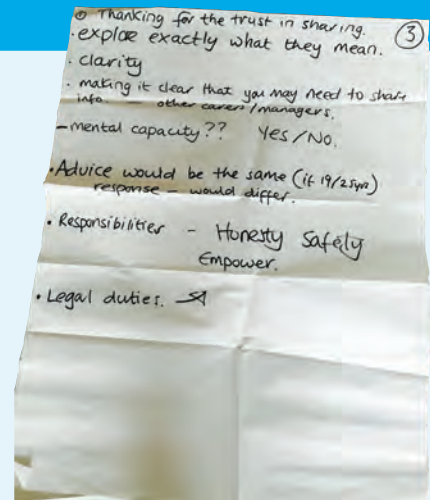 • Thanking for the trust in sharing. ③
• explore exactly what they mean.
• clarity
• making it clear that you may need to share
info — other carers/managers.
– mental capacity?? Yes/No.
• Advice would be the same (if 19/25yrs)
response – would differ.
• Responsibilities - Honesty Safely
Empower.
• Legal duties.